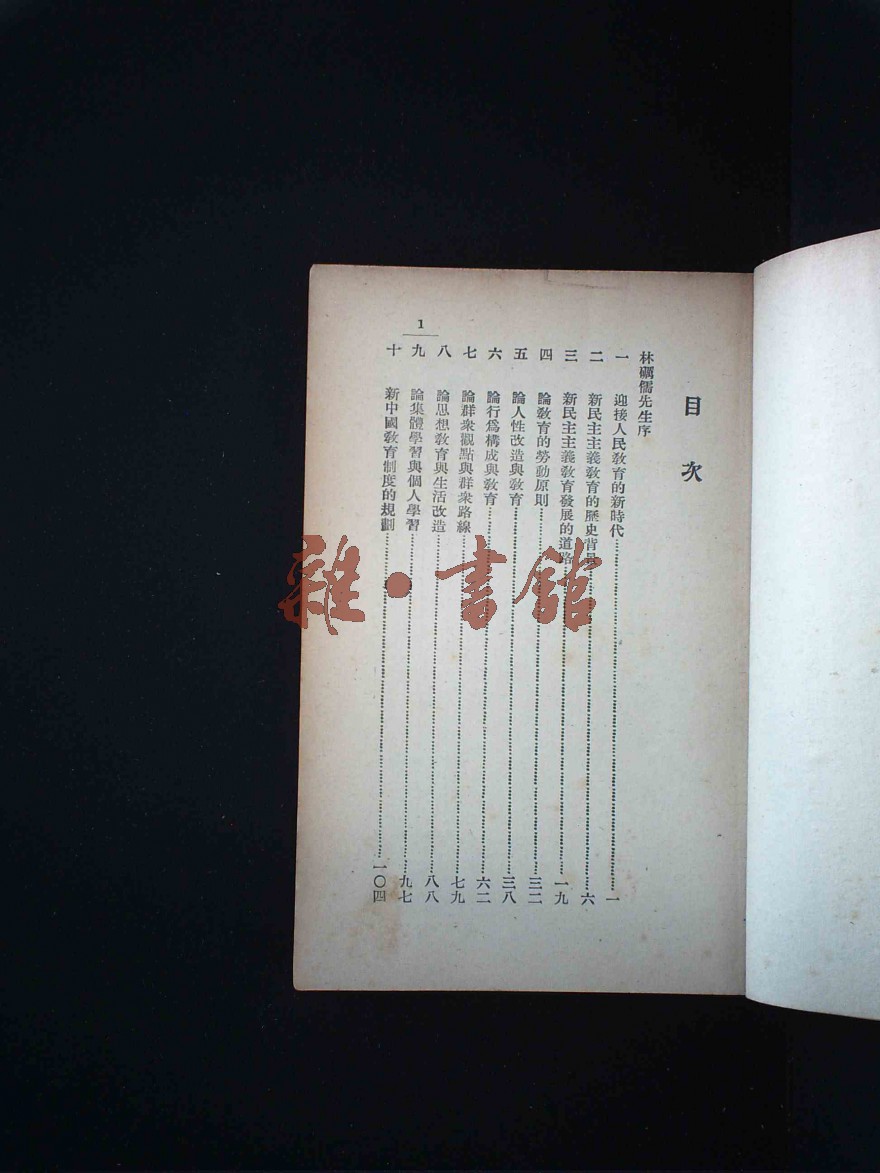 目次
林礪儒先生序
一 迎接人民敎育的新時代……一
二 新民主主義敎育的歷史背景……六
三 新民主主義敎育發展的道路……一九
四 論敎育的勞動原則……三二
五 論人性改造與敎育……三八
六 論行爲構成與敎育……六二
七 論群衆觀點與群衆路線……七九
八 論思想敎育與生活改造……八八
九 論集體學習與個人學習……九七
十 新中國敎育制度的規劃……一〇四
1
雜·書館